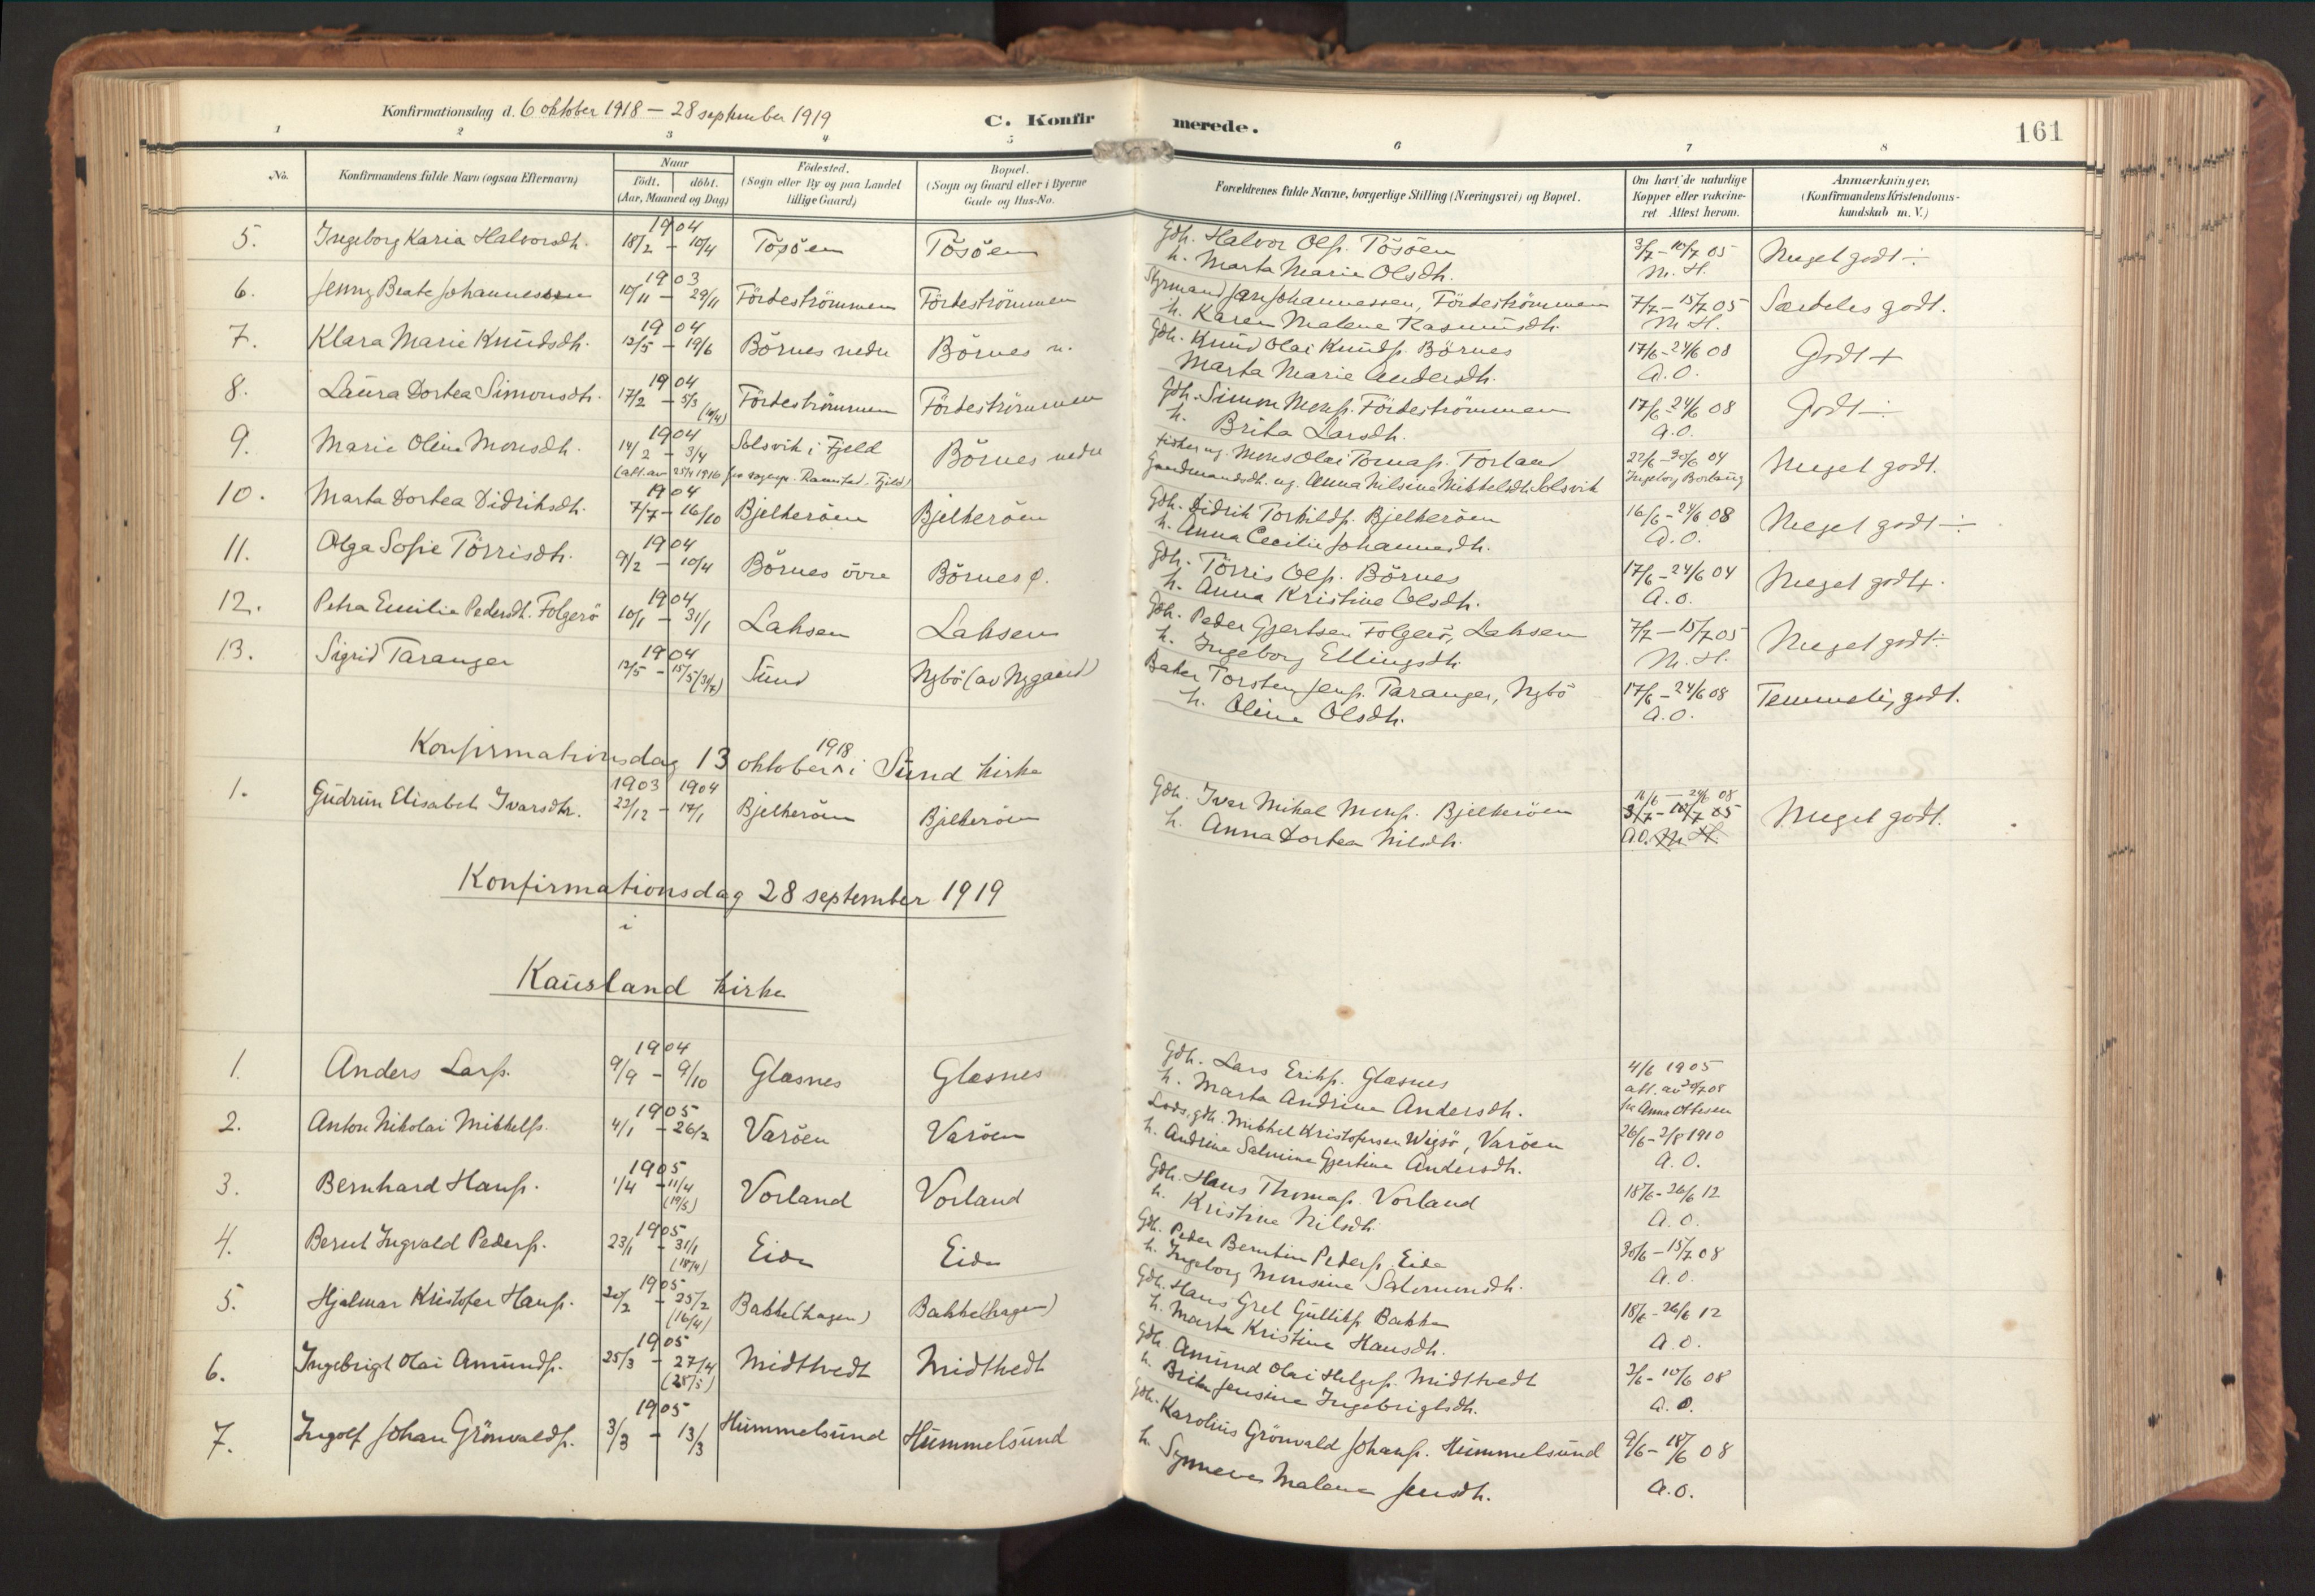 Konfirmationsdag d. 6 oktober 1918 – 28 september 1919
C. Konfirmerede.
161
1 2 3 4 5 6 7 8
No. Konfirmandens fulde Navn (ogsaa Efternavn) Naar født. døbt. (Aar, Maaned og Dag) Födested. (Sogn eller By og paa Landet tillige Gaard) Bopæl. (Sogn og Gaard eller i Byerne Gade og Hus-No. Forældrenes fulde Navne, borgerlige Stilling (Næringsvei) og Bopæl. Om havt de naturlige Kopper eller vakcineret Attest herom. Anmærkninger, (Konfirmandens Kristendomskundskab m. V.)
5. Ingeborg Karia Halvorsdh. 1904 18/2 – 10/4 Tösöen Tösöen Gdh. Halvor Olss. Tösöen 3/7 – 10/7 05 Meget godt ÷
h. Marta Marie Olsdh. M. H.
6. Jenny Beate Johannessen 1903 10/11 – 29/11 Fördeströmmen Fördeströmmen Styrmand Jan Johannessen, Fördeströmmen 7/7 – 15/7 05 Særdeles godt.
h. Karen Malene Rasmusdh. M. H.
7. Klara Marie Knudsdh. 1904 12/5 – 19/6 Börnes nedre Börnes n. Gdh. Knud Olai Knudss. Börnes 17/6 – 24/6 08 Godt +
Marta Marie Andersdh. A. O.
8. Laura Dortea Simonsdh. 1904 17/2 – 5/3 (10/4) Fördeströmmen Fördeströmmen Gdh. Simon Monss. Fördeströmmen 17/6 – 24/6 08 Godt ÷
h. Brita Larsdh. A. O.
9. Marie Oline Monsdh. 1904 14/2 – 3/4 Solsvik i Fjeld Börnes nedre Fisker ug. Mons Olai Tomass. Torland 22/6 – 30/6 04 Meget godt.
Gaardmandsdh. ug. Anna Nilsine Mikkelsdh. Solsvik Ingeborg Borlaug
10. Marta Dortea Didriksdh. 1904 7/7 – 16/10 Bjelkeröen Bjelkeröen Gdh. Didrik Torkildss. Bjelkeröen 16/6 – 24/6 08 Meget godt ÷
h. Anna Cecilie Johannesdh. A. O.
11. Olga Sofie Törrisdh. 1904 9/2 – 10/4 Börnes övre Börnes ø. Gdh. Törris Olss. Börnes 17/6 – 24/6 04 Meget godt +
h. Anna Kristine Olsdh. A. O.
12. Petra Emilie Pedersdh. Folgerö 1904 10/1 – 31/1 Laksen Laksen Gdh. Peder Gjertsen Folgerö, Laksen 7/7 – 15/7 05 Meget godt ÷
h. Ingeborg Ellingsdh. M. H.
13. Sigrid Taranger 1904 12/5 – 15/5 (31/7) Sund Nybö (av Nygaard) Baker Torsten Jenss. Taranger, Nybö 17/6 – 24/6 08 Temmelig godt.
h. Oline Olsdh. A. O.
Konfirmationsdag 13 oktober 1918 i Sund kirke
1. Gudrun Elisabet Ivarsdtr. 1903 1904 22/12 – 17/1 Bjelkeröen Bjelkeröen Gdh. Ivar Mikal Monss. Bjelkeröen 16/6 – 24/6 08 3/7 – 10/7 05 Meget godt.
h. Anna Dortea Nilsdh. A. O. M. H.
Konfirmationsdag 28 september 1919
i
Kausland kirke
1. Anders Larss. 1904 9/9 – 9/10 Glæsnes Glæsnes Gdh. Lars Erikss. Glæsnes 4/6 1905
h. Marta Andrine Andersdh. att. av 20/7 08 fra Anna Ottesen
2. Anton Nikolai Mikkelss. 1905 4/1 – 26/2 Varöen Varöen Lods. gdh. Mikkel Kristofersen Wigsö, Varöen 26/6 – 2/8 1910
h. Andrine Salmine Gjertine Andersdh. A. O.
3. Bernhard Hanss. 1905 1/4 – 11/4 (19/5) Vorland Vorland Gdh. Hans Thomass. Vorland 18/6 – 26/6 12
h. Kristine Nilsdh. A. O.
4. Bernt Ingvald Pederss. 1905 23/1 – 31/1 (18/4) Eide Eide Gdh. Peder Berntin Pederss. Eide 30/6 – 15/7 08
h. Ingeborg Monsine Salomonsdh. A. O.
5. Hjalmar Kristofer Hanss. 1905 20/2 – 25/2 (16/4) Bakke (hagen) Bakke (hagen) Gdh. Hans Gret Gullikss. Bakke 18/6 – 26/6 12
h. Marta Kristine Hansdh. A. O.
6. Ingebrigt Olai Amundss. 1905 25/3 – 27/4 (28/5) Midttvedt Midttvedt Gdh. Amund Olai Helgess. Midttvedt 2/6 – 10/6 08
h. Brita Jensine Ingebrigtsdh. A. O.
7. Ingolf Johan Grönvaldss. 1905 3/3 – 13/3 Hummelsund Hummelsund Gdh. Karolius Grönvald Johanss. Hummelsund 9/6 – 18/6 08
h. Synneve Malene Jensdh. A. O.